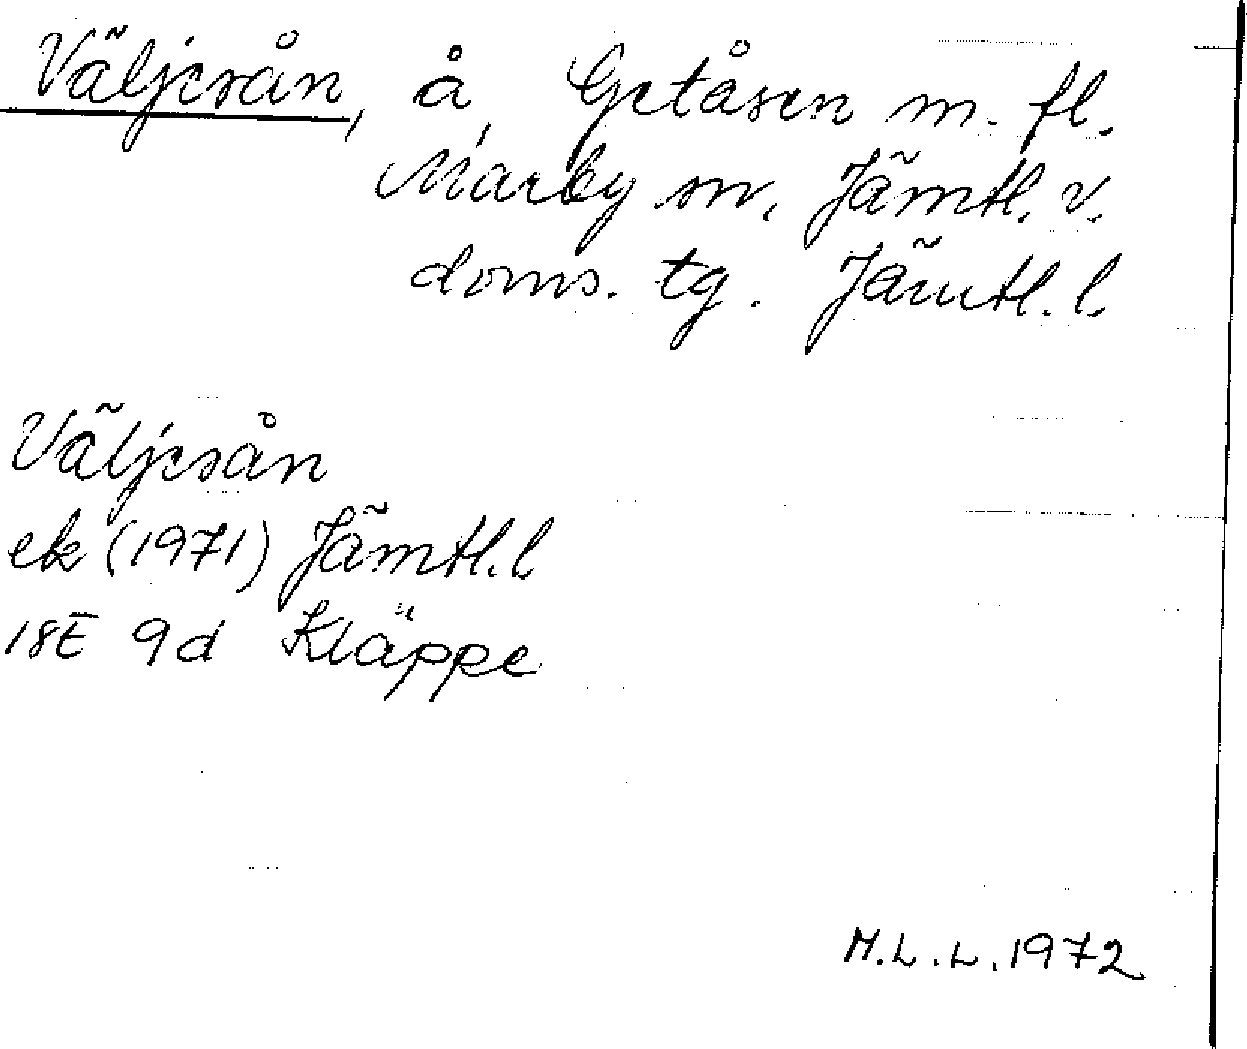 Väljesån, å, Getåsen m. fl.
Marby sn, Jämtl. v.
doms. tg. Jämtl. l.
Väljesån
ek (1971) Jämtl. l.
18E 9d Kläppe
M.L.L. 1972